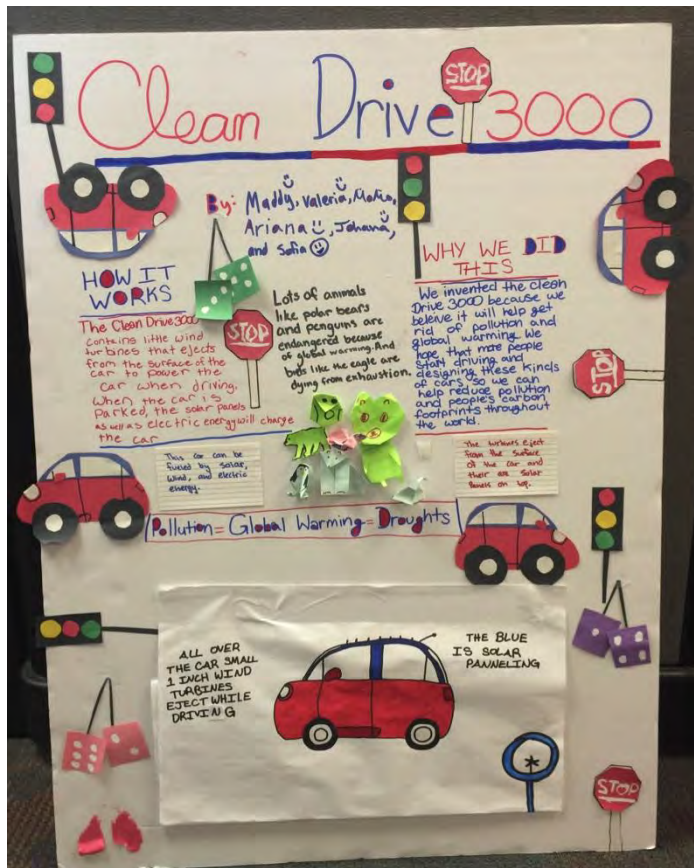 Clean Drive 3000
STOP
By: Maddy, Valeria,
Ariana, Johana,
and Sofia
HOW IT
WORKS
The Clean Drive 3000
contains little wind
turbines that ejects
from the surface of the
car to power the
car when driving.
When the car is
parked, the solar panels
as well as electric energy will charge
the car
STOP
Lots of animals
like polar bears
and penguins are
endangered because
of global warming. And
birds like the eagle are
dying from exhaustion.
WHY WE DID
THIS
We invented the clean
Drive 3000 because we
beleive it will help get
rid of pollution and
global warming. We
hope that more people
start driving and
designing these kinds
of cars so we can
help reduce pollution
and people's carbon
footprints throughout
the world.
STOP
This car can be
fueled by solar,
wind, and electric
energy.
The turbines eject
from the surface
of the car and
their are solar
panels on top.
Pollution = Global Warming = Droughts
ALL OVER
THE CAR SMALL
1 INCH WIND
TURBINES
EJECT WHILE
DRIVING
THE BLUE
IS SOLAR
PANNELING
STOP